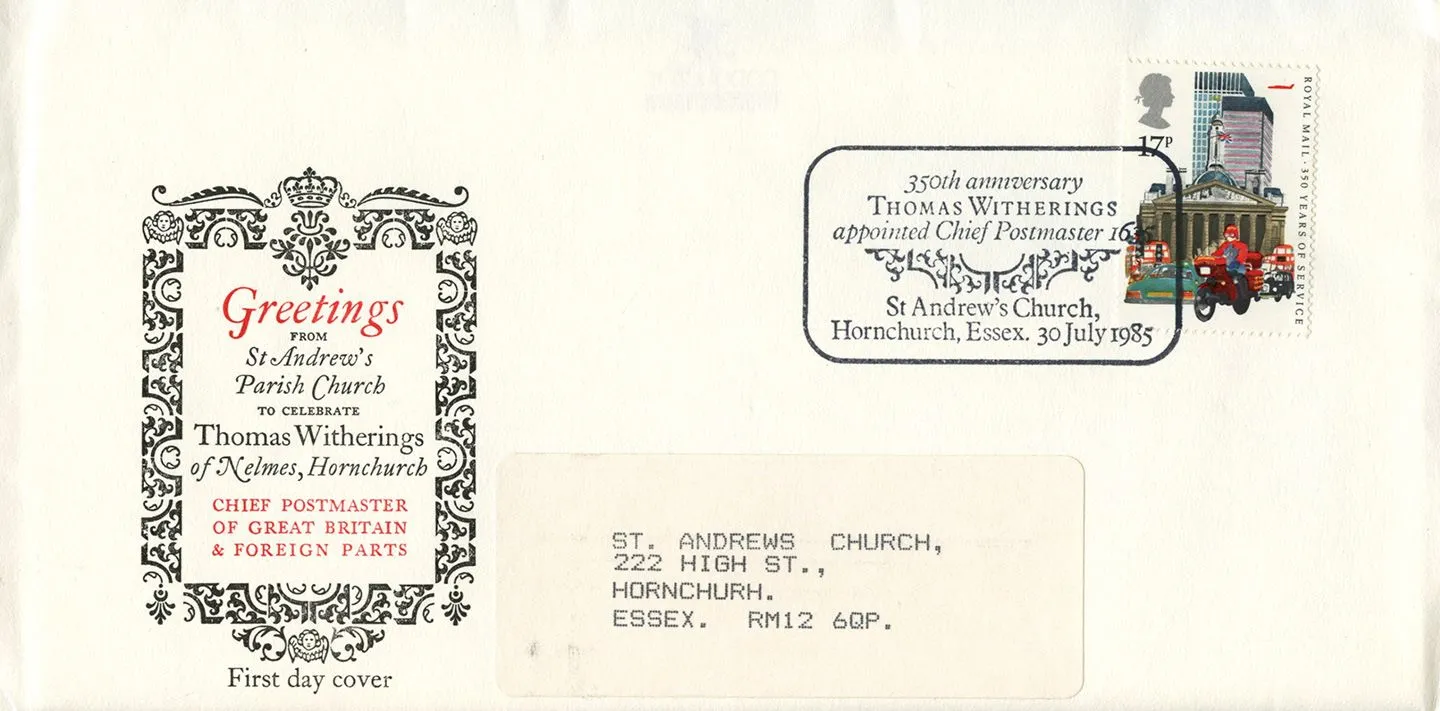 Greetings
FROM
St Andrew's
Parish Church
TO CELEBRATE
Thomas Witherings
of Nelmes, Hornchurch
CHIEF POSTMASTER
OF GREAT BRITAIN
& FOREIGN PARTS
First day cover
350th anniversary
THOMAS WITHERINGS
appointed Chief Postmaster 1635
St Andrew's Church,
Hornchurch, Essex. 30 July 1985
17P
ROYAL MAIL · 350 YEARS OF SERVICE
ST. ANDREWS CHURCH,
222 HIGH ST.,
HORNCHURH.
ESSEX. RM12 6QP.